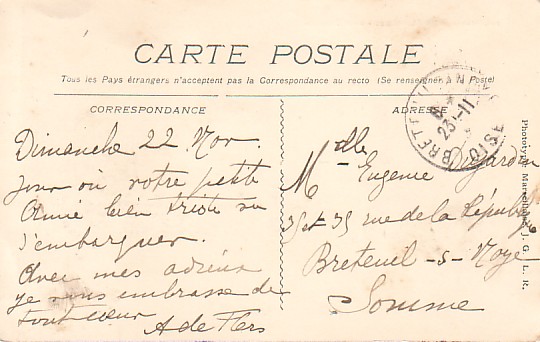 CARTE POSTALE
Tous les Pays étrangers n'acceptent pas la Correspondance au recto (Se renseigner à la Poste)
CORRESPONDANCE
Dimanche 22 Nov.
jour où votre petite
Amie bien triste va
s'embarquer.
Avec mes adieux
je vous embrasse de
tout cœur
A de Flers
ADRESSE
BRETEUIL
23-11
OISE
Melle
Eugenie Dujardin
35 rue de la République
Breteuil-s-Noye
Somme
Phototypie Marseille J. G. L. R.